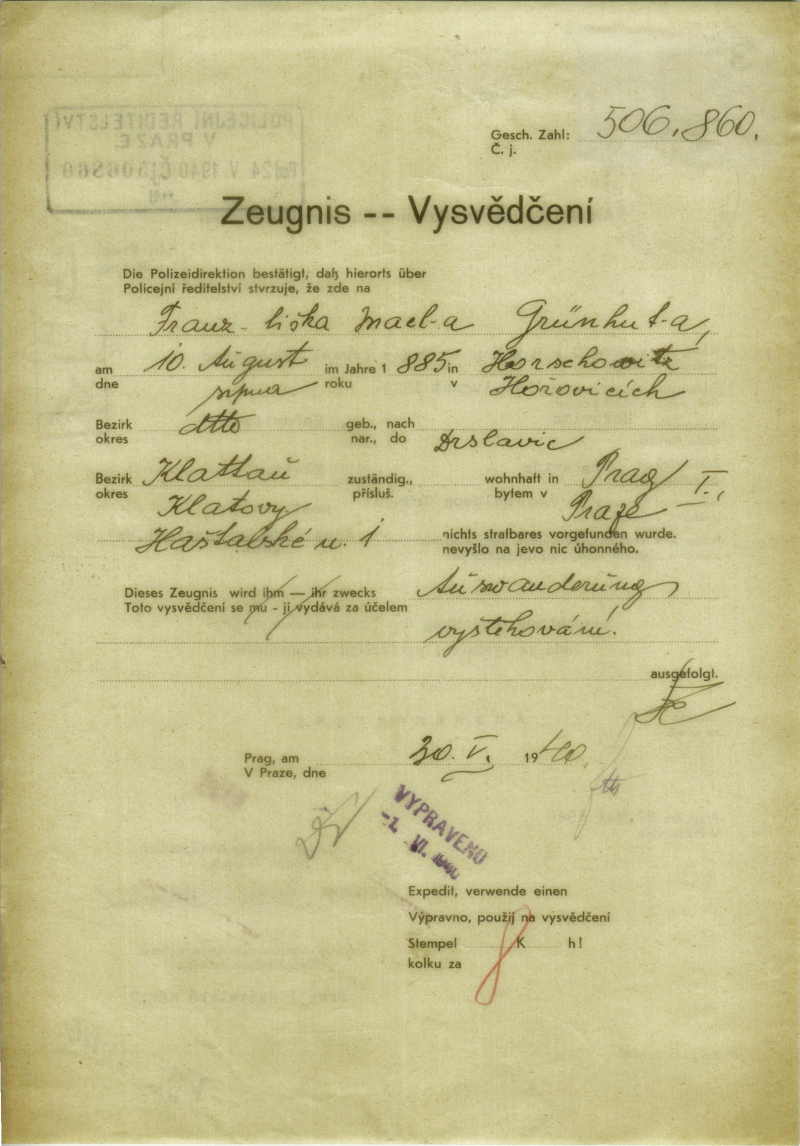 POLICEJNÍ ŘEDITELSTVÍ
V PRAZE
24 V 1940 Č.j. 506860
Gesch. Zahl: 506.860.
Č. j.
Zeugnis -- Vysvědčení
Die Polizeidirektion bestätigt, daß hierorts über
Policejní ředitelství stvrzuje, že zde na
Franz-liška Israel-a Grünhut-a,
am 10. August im Jahre 1 885 in Horschowitz
dne srpna roku v Hořovicích
Bezirk dtto geb., nach
okres nar., do Drslavic
Bezirk Klattau zuständig., wohnhaft in Prag I.,
okres Klatovy přísluš. bytem v Praze
Haštalské u. 1 nichts strafbares vorgefunden wurde.
nevyšlo na jevo nic úhonného.
Dieses Zeugnis wird ihm — ihr zwecks Auswanderung
Toto vysvědčení se mu - jí vydává za účelem
vystěhování.
ausgefolgt.
Prag, am 30. V. 1940.
V Praze, dne
VYPRAVENO
-1. VI. 1940
Expedit, verwende einen
Výpravno, použij na vysvědčení
Stempel K h!
kolku za 8